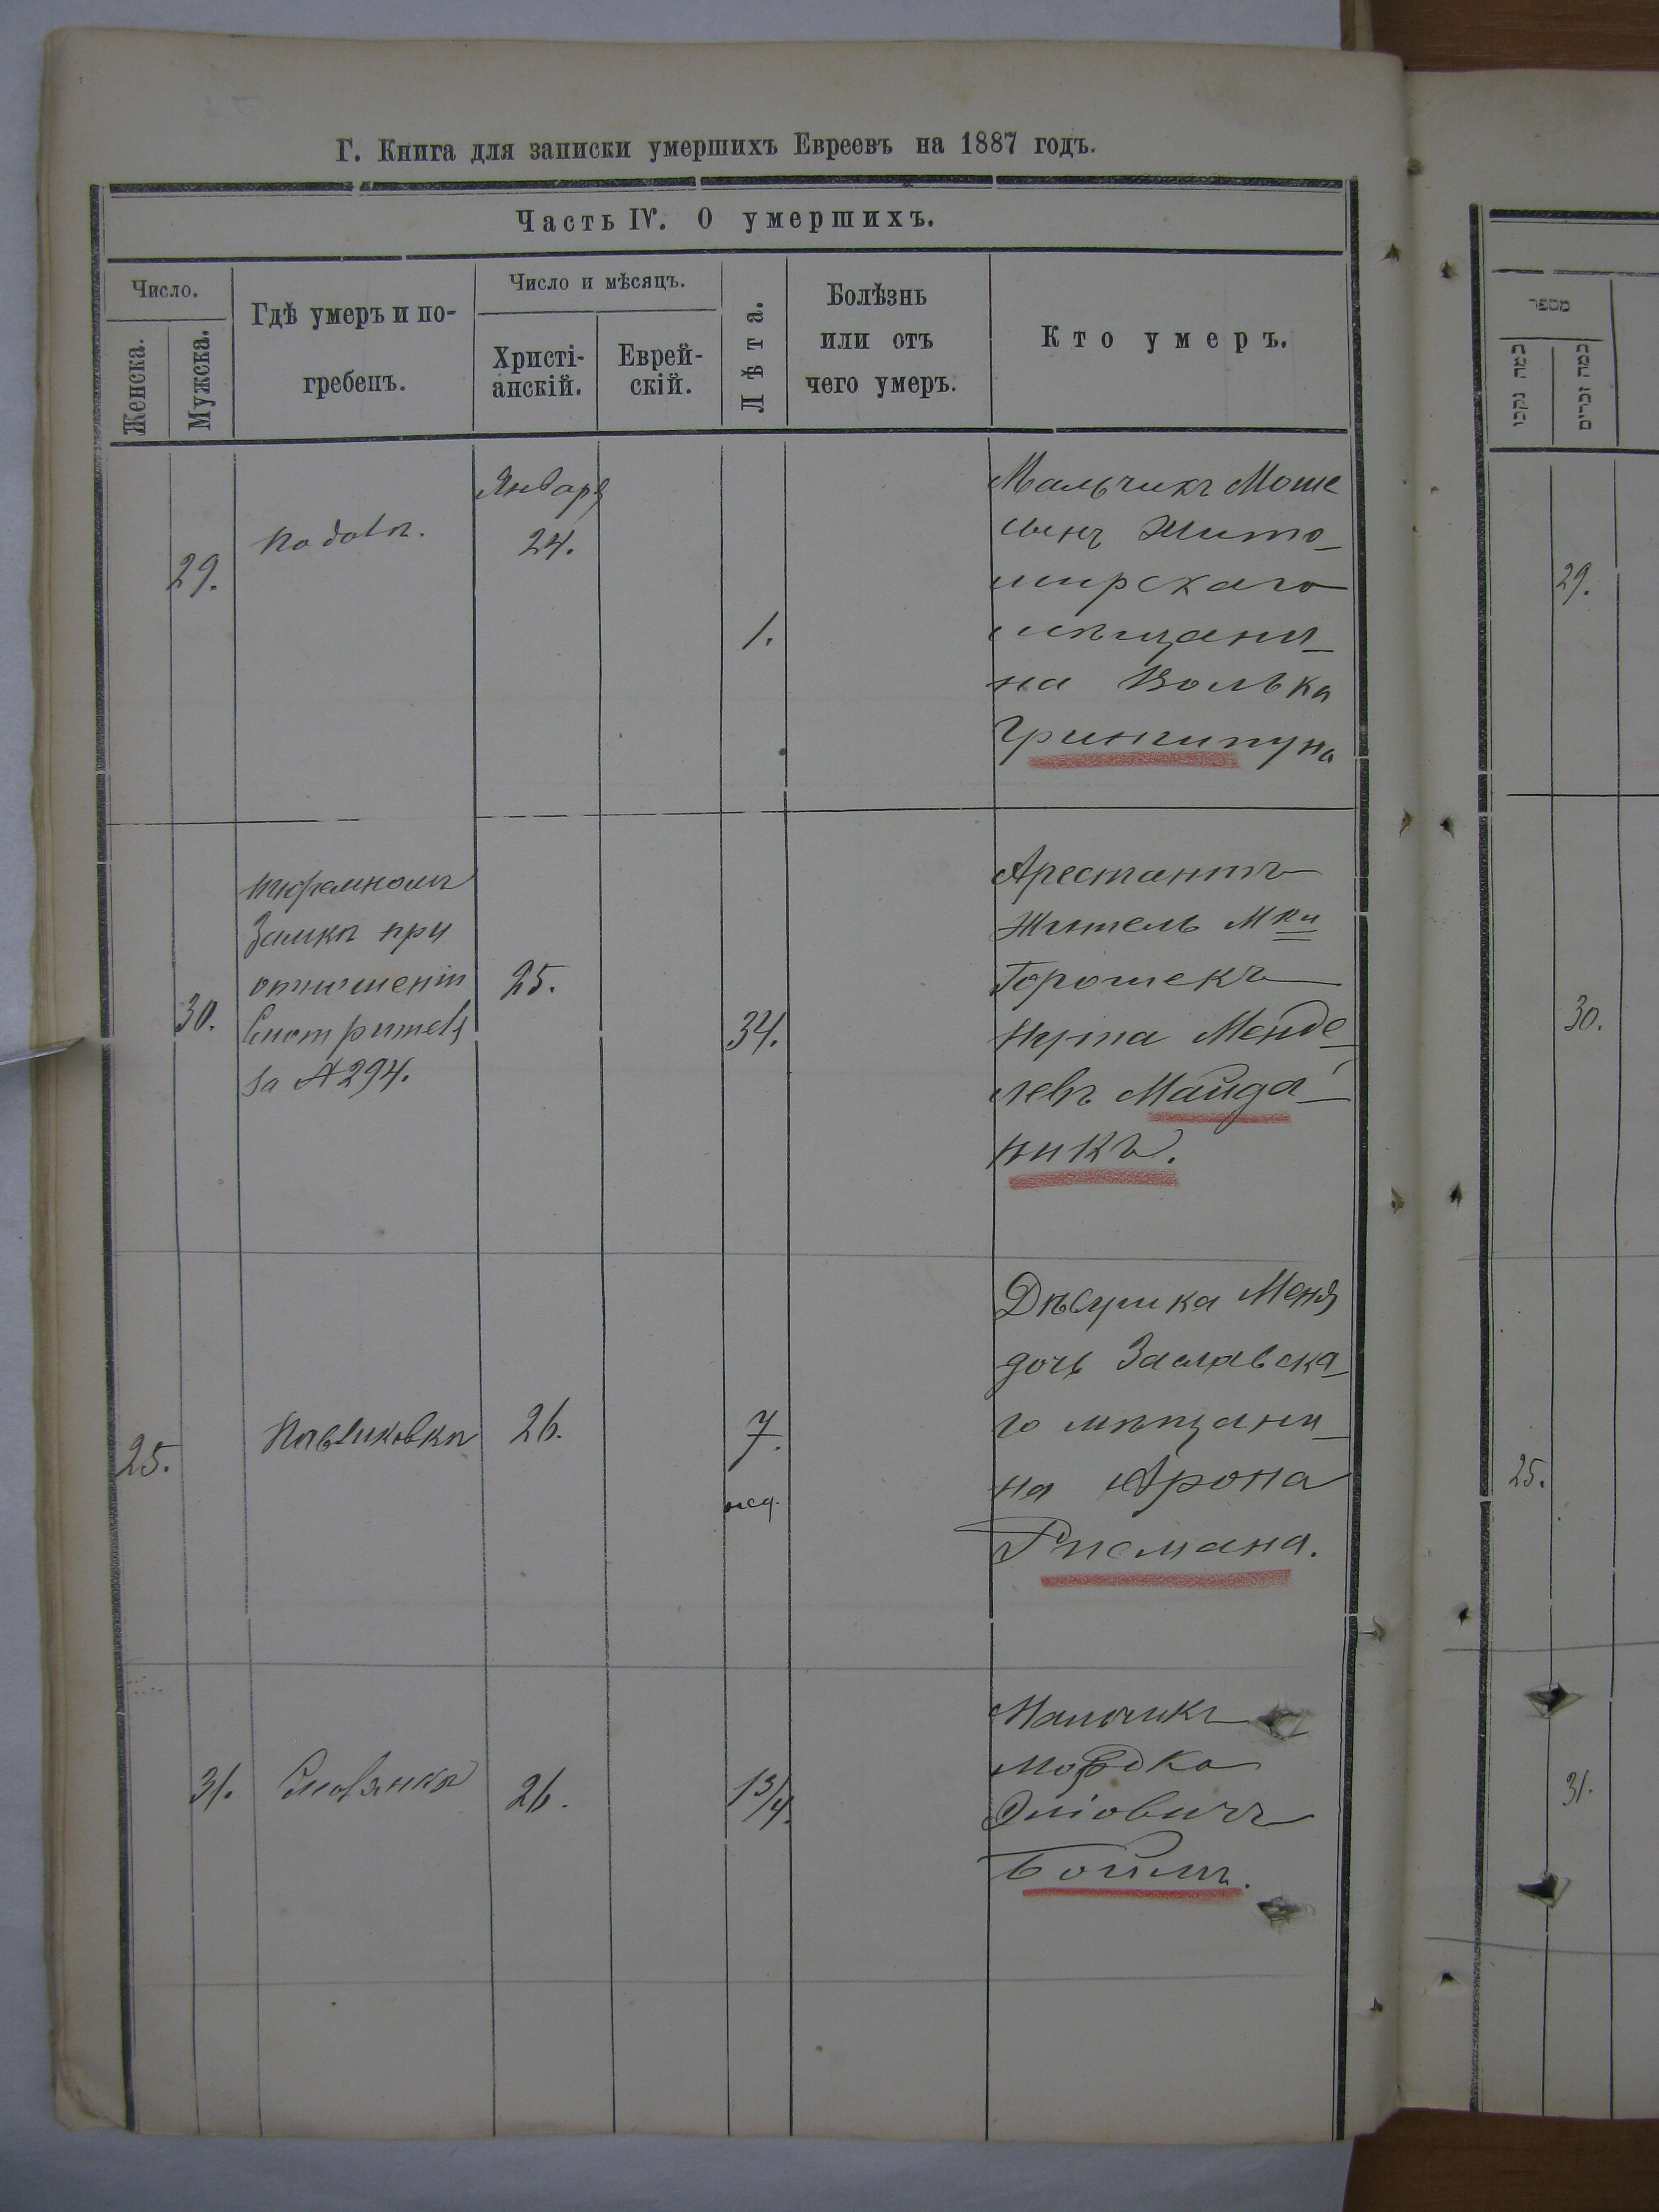 Г. Книга для записки умершихъ Евреевъ на 1887 годъ.
Часть IV. О умершихъ.
Число.
Женска.
Мужска.
Гдѣ умеръ и по-
гребенъ.
Число и мѣсяцъ.
Христі-
анскій.
Еврей-
скій.
Лѣта.
Болѣзнь
или отъ
чего умеръ.
Кто умеръ.
מספר
כמה נקבו
כמה זכרים
29.
Подолѣ.
Января
24.
1.
Мальчикъ Моше
сынъ Жито-
мирскаго
мѣщани-
на Волька
29.
30.
тюремномъ
Замкѣ при
отношеніи
Смотрителя
за № 294.
25.
34.
Арестантъ
житель Мки
Горошекъ
Нута Менде-
левъ Майда-
никъ.
30.
25.
Павликовкѣ
26.
7.
нед.
Дѣвушка Меня
дочь Заславска-
го мѣщани-
на Арона
Рисмана.
25.
31.
26.
1 3/4.
Мальчикъ
Мордко
Эліовичъ
Боймъ.
31.